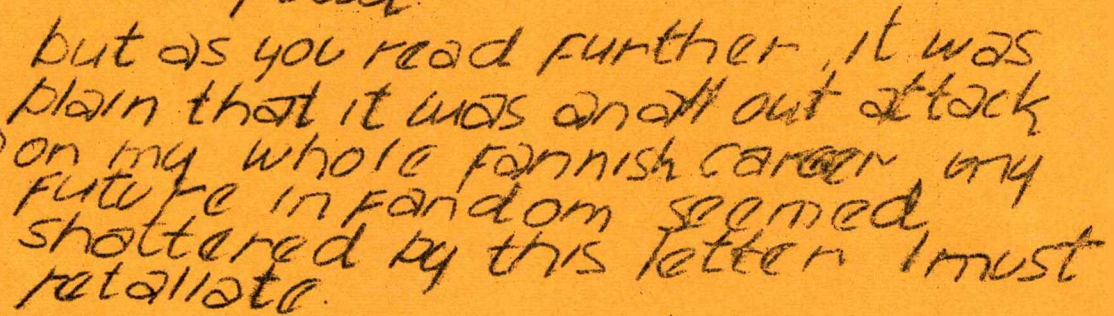 but as you read further, it was
plain that it was anall out attack
on my whole fannish career, my
future in fandom seemed
shattered by this letter I must
retaliate.